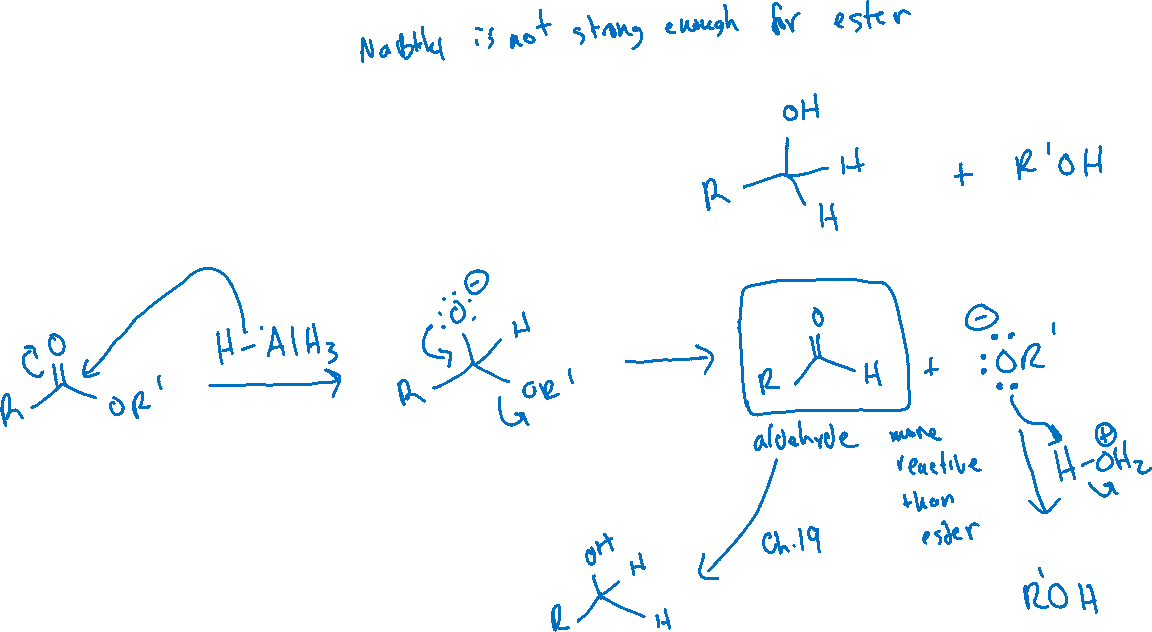 NaBH4 is not strong enough for ester
OH
R
H
H
+ R'OH
O
R
OR'
H-AlH3
⊖
:O:
H
R
OR'
O
R
H
+
⊖
:OR'
aldehyde
more
reactive
than
ester
H-OH2
⊕
Ch.19
OH
H
R
H
R'OH